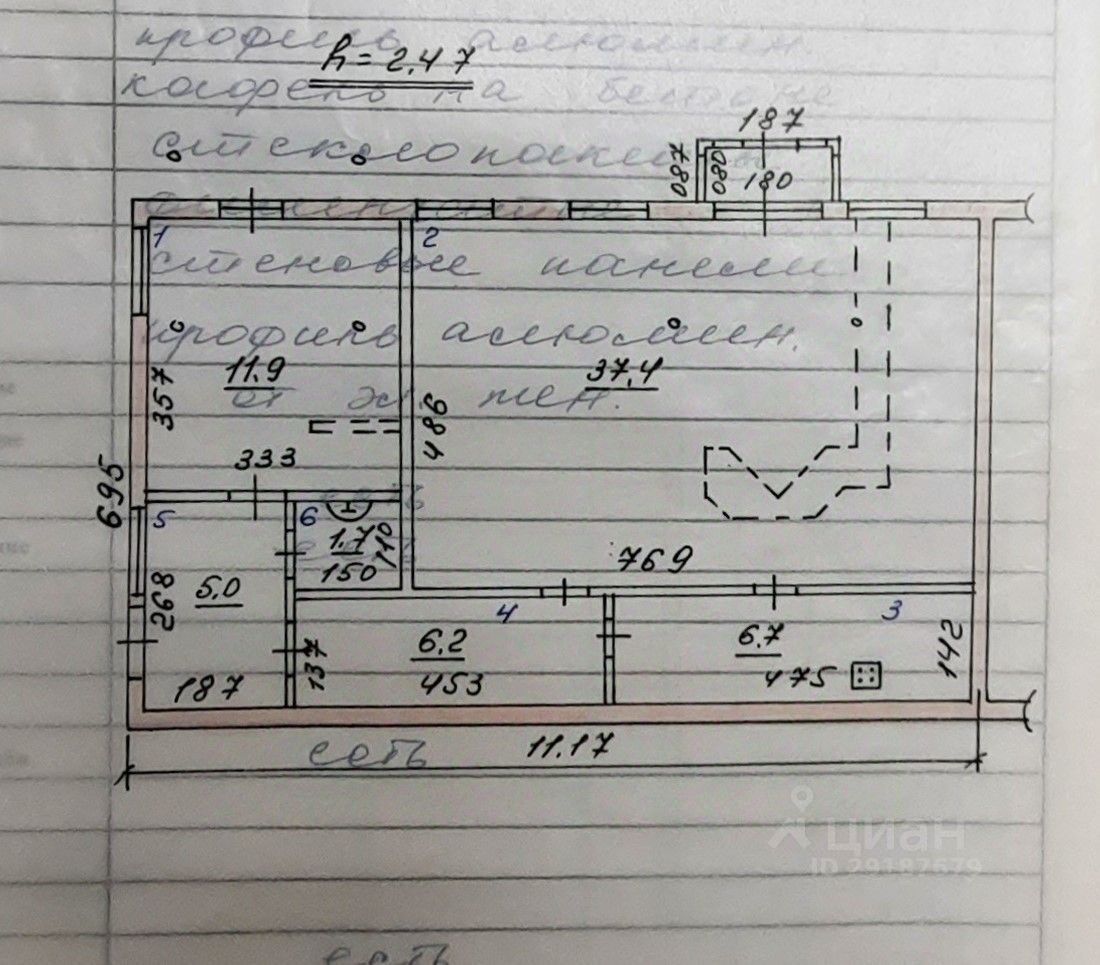 профиль алюмин
h = 2.47
кафель на бетоне
187
стеклопакет
087
080
180
1
2
стеновые панели
профиль алюмин.
11.9
37,4
357
486
от эл
333
695
есть
5
6
1.7
110
150
769
268
5.0
4
3
137
6.2
453
6.7
475
142
187
есть
11.17
циан
ID 29187679
есть